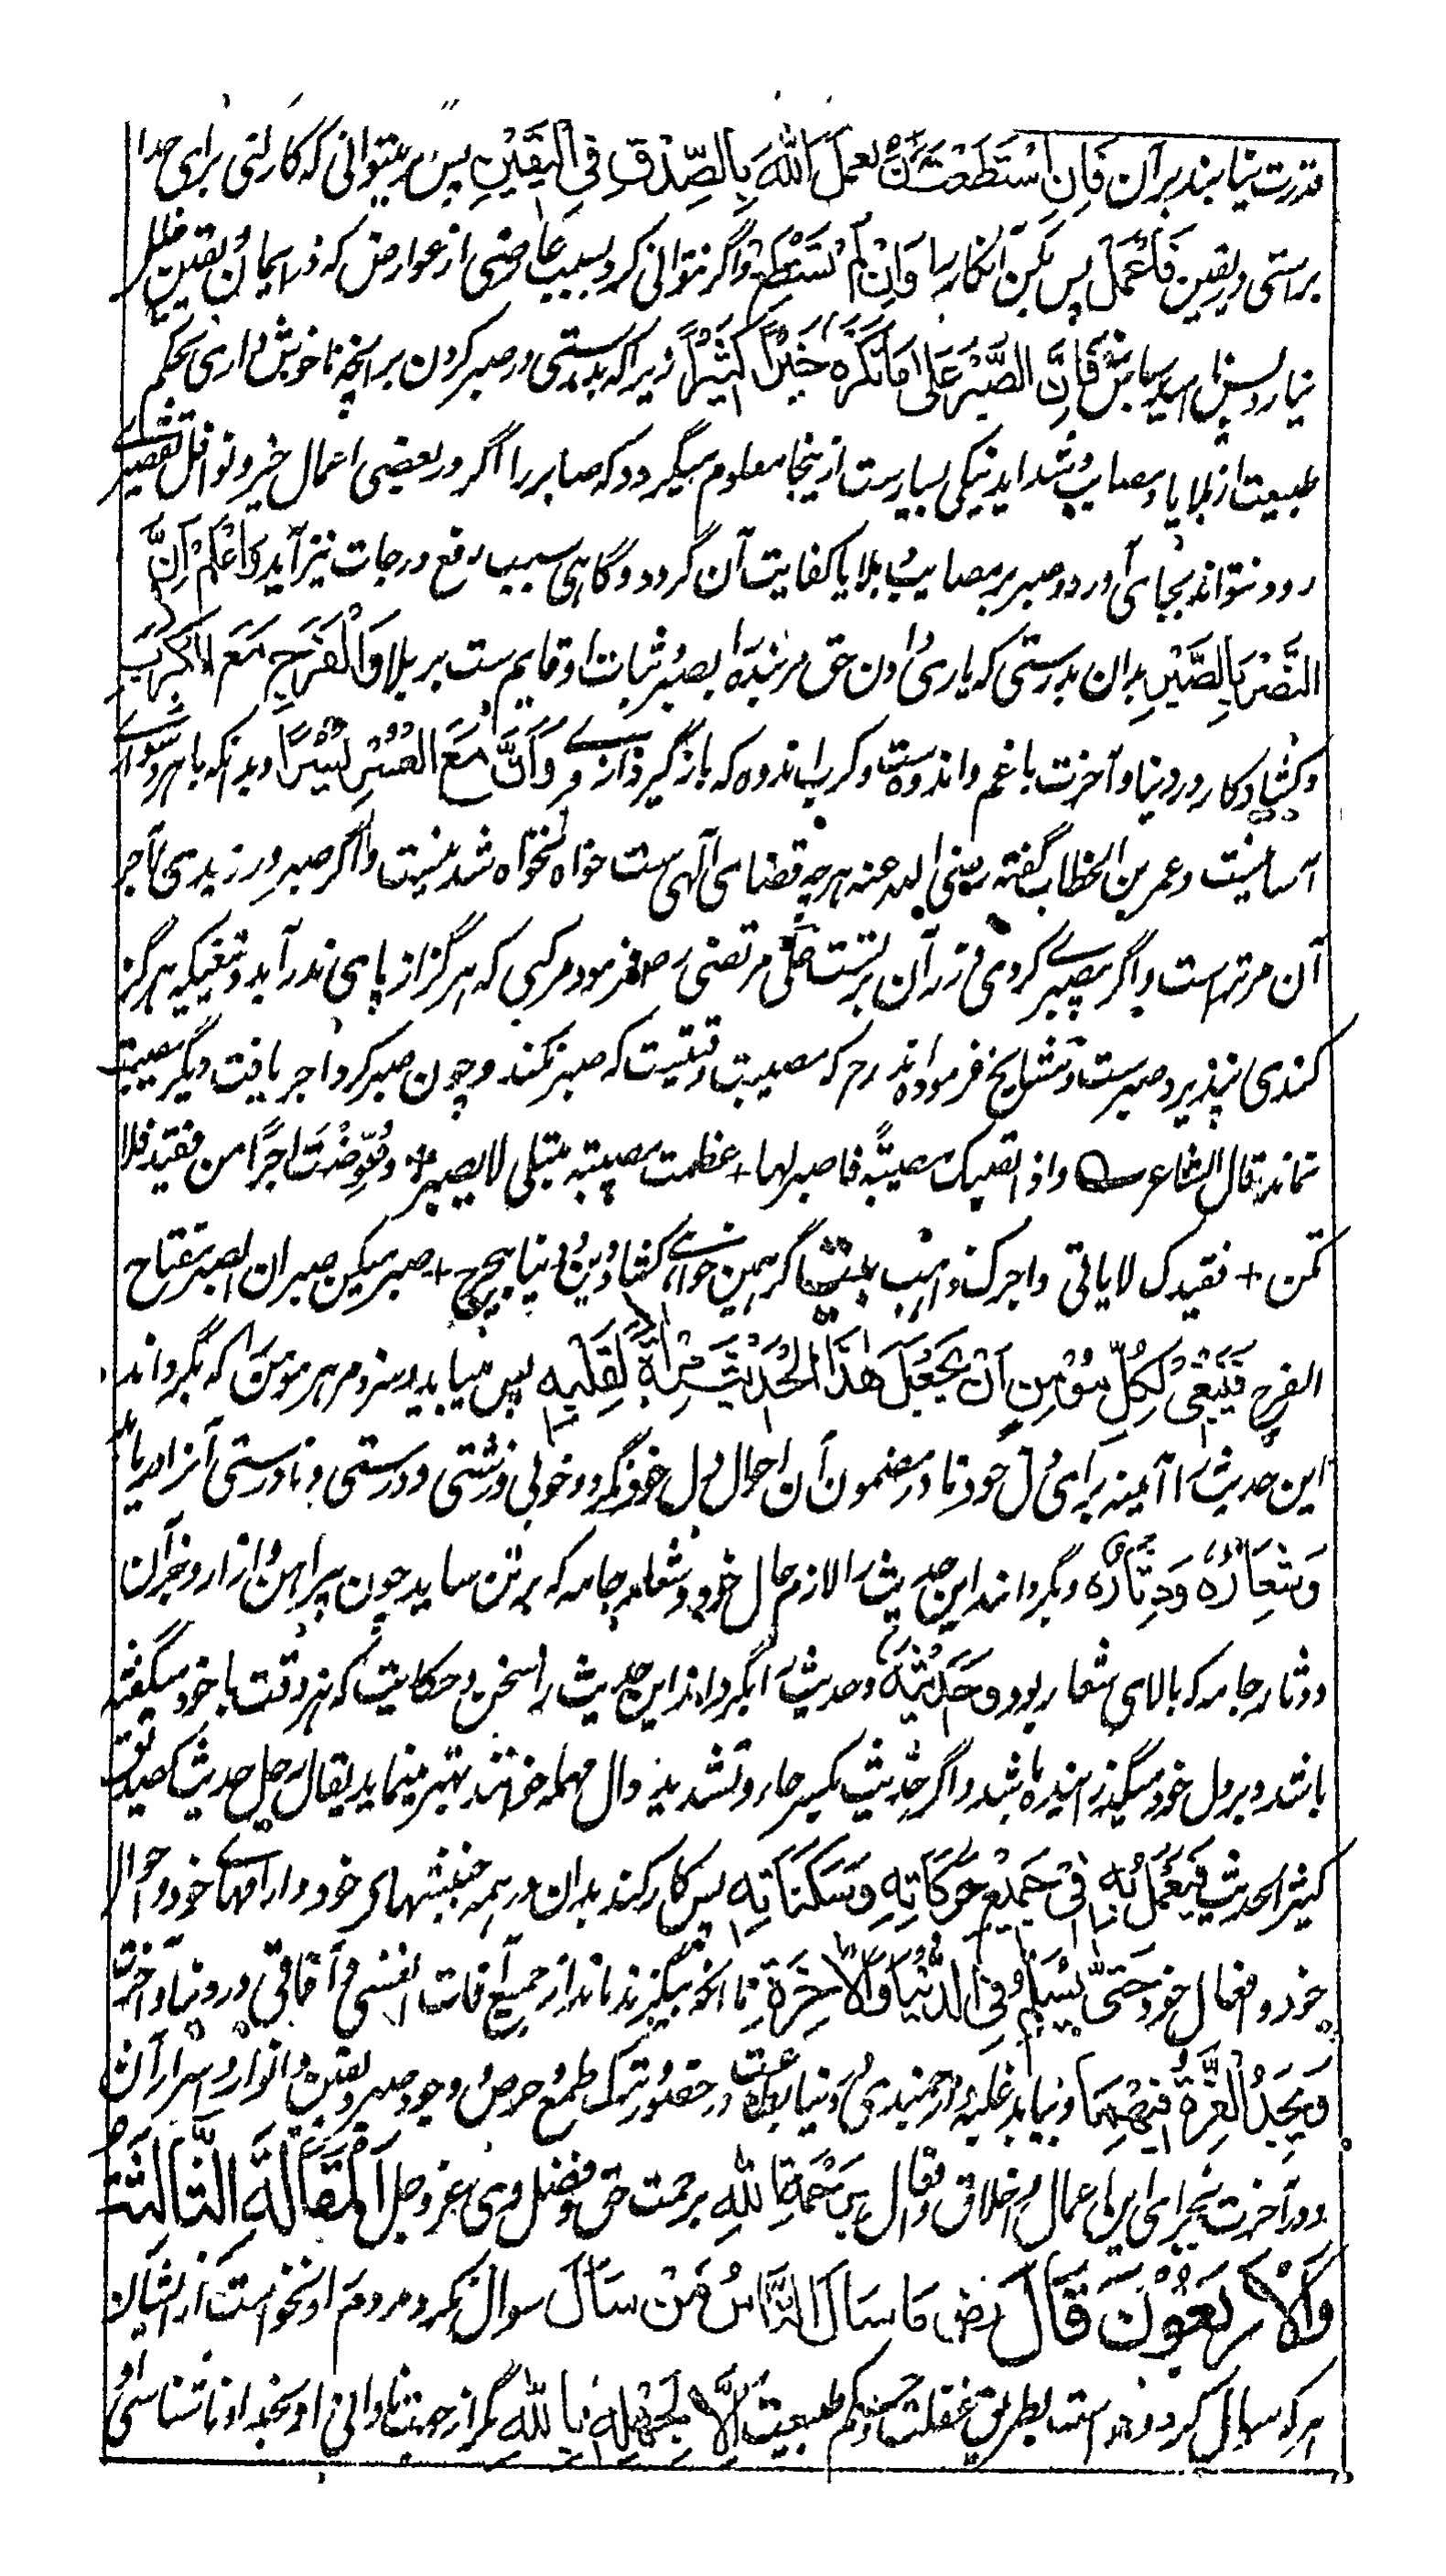 قدرت نیابند بر آن فَاِنِ اسْتَطَعْتَ اَنْ تَعْمَلَ اللّٰهَ بِالصِّدْقِ فِی الْیَقِیْنِ پس گر میتوانی که کار کنی برای خدا
براستی و یقین فَاعْمَلْ پس بکن آنکار را وَاِنْ لَمْ تَسْتَطِعْ و اگر نتوانی کرد بسبب عارضی از عوارض که در ایمان و یقین خلل
نیارد پس فَاِنَّ الصَّبْرَ عَلٰی مَا تَکْرَهُ خَیْرًا کَثِیْرًا زیرا که بدرستی در صبر کردن بر آنچه ناخوش داری بحکم
طبیعت از بلایا و مصایب و شداید نیکی بسیارست ازینجا معلوم میگردد که صابر را اگر در بعضی اعمال خیر و نوافل تقصیرے
رود و نتواند بجای آورد و صبر بر مصایب و بلایا کفایت آن گردد و گاهی سبب رفع درجات نیز آید وَاعْلَمْ اَنَّ
النَّصْرَ بِالصَّبْرِ بدان بدرستی که یاری دادن حق مر بنده را بصبر و ثبات او قایم ست بر بلا وَالْفَرَجِ مَعَ الْکَرْبِ
و کشاد کار در دنیا و آخرت با غم و اندوه ست و کرب اندوه که باز گیرد وَاَنَّ مَعَ الْعُسْرِ یُسْرًا و بدانکه با هر دشوارے
آسانیست و عمر بن الخطاب گفته رضی الله عنه هر چه قضای الٓهی ست خواه نخواه شدنیست و اگر صبر ورزیدی اجر
آن مر تراست و اگر بیصبرے کردی وزر آن بر تست علی مرتضی رض فرمود مرکبی که هرگز از پای ندر آید و تیغیکه هرگز
کندی نپذیرد صبرست و مشایخ فرموده اند رح که مصیبت وقتیست که صبر نکند و چون صبر کرد و اجر یافت دیگر مصیبت
نماند قال الشاعر واذا تصبک مصیبةً فاصبر لها + عظمت مصیبة مبتلی لا یصبر + وعُوِّضْتَ اجرًا من فقید فلا
تکن + فقیدک لا یاتی واجرک ذاهب بیت گر همین خواهے کشاد دین و دنیا هیچ هیچ + صبر میکن صبر ان الصبر مفتاح
الفرج فَیَنْبَغِیْ لِکُلِّ مُؤْمِنٍ اَنْ یَجْعَلَ هٰذَا الْحَدِیْثَ مِرْاٰةً لِقَلْبِهِ پس میباید و سزد مر هر مومن را که بگرداند
این حدیث را آئینه برای دل خود تا در مضمون آن احوال دل خود نگرد و خوبی و زشتی و درستی و نادرستی آنرا دریابد
وَشِعَارَهُ وَدِثَارَهُ و بگرداند این حدیث را لازم حال خود و شعار جامه که بر تن ساید چون پیراهن و ازار و جز آن
و دثار جامه که بالای شعار بود وَحَدِیْثَهُ و حدیث را بگرداند این حدیث را سخن و حکایت که هر وقت با خود میگفته
باشد و بر دل خود میگذرانیده باشد و اگر حِدّیث بکسر حاء و تشدید دال مهمله خوانند بهتر مینماید یقال رجل حدیث کصدیق
کثیر الحدیث فَیَعْمَلُ بِهِ فِیْ جَمِیْعِ حَرَکَاتِهِ وَسَکَنَاتِهِ پس کار کند بدان در همه جنبشهای خود و آرامهاے خود و احوال
خود و افعال خود حَتّٰی یَسْلَمَ فِی الدُّنْیَا وَالْاٰخِرَةِ تا آنکه بیگزند ماند از جمیع آفات انفسی و آفاقی در دنیا و آخرت
وَیَجِدَ الْعِزَّةَ فِیْهِمَا و بیابد غلبه و ارجمندی در دنیا و ترک طمع و حرص و وجود صبر و یقین و انوار و اسرار آن
و در آخرت بجزای این اعمال و اخلاق و افعال بِرَحْمَةِ اللّٰهِ برحمت حق و فضل وی عز و جل اَلْمَقَالَةُ الثَّالِثَةُ
وَالْاَرْبَعُوْنَ قَالَ رَضِ مَا سَأَلَ النَّاسُ مَنْ سَأَلَ سوال نکرد مردم را و نخواست از ایشان
هر که سوال کرد و خواست بطریق غفلت و حکم طبیعت اِلَّا لِجَهْلِهِ بِاللّٰهِ مگر از جهت نادانی او بخدا و ناشناسی او